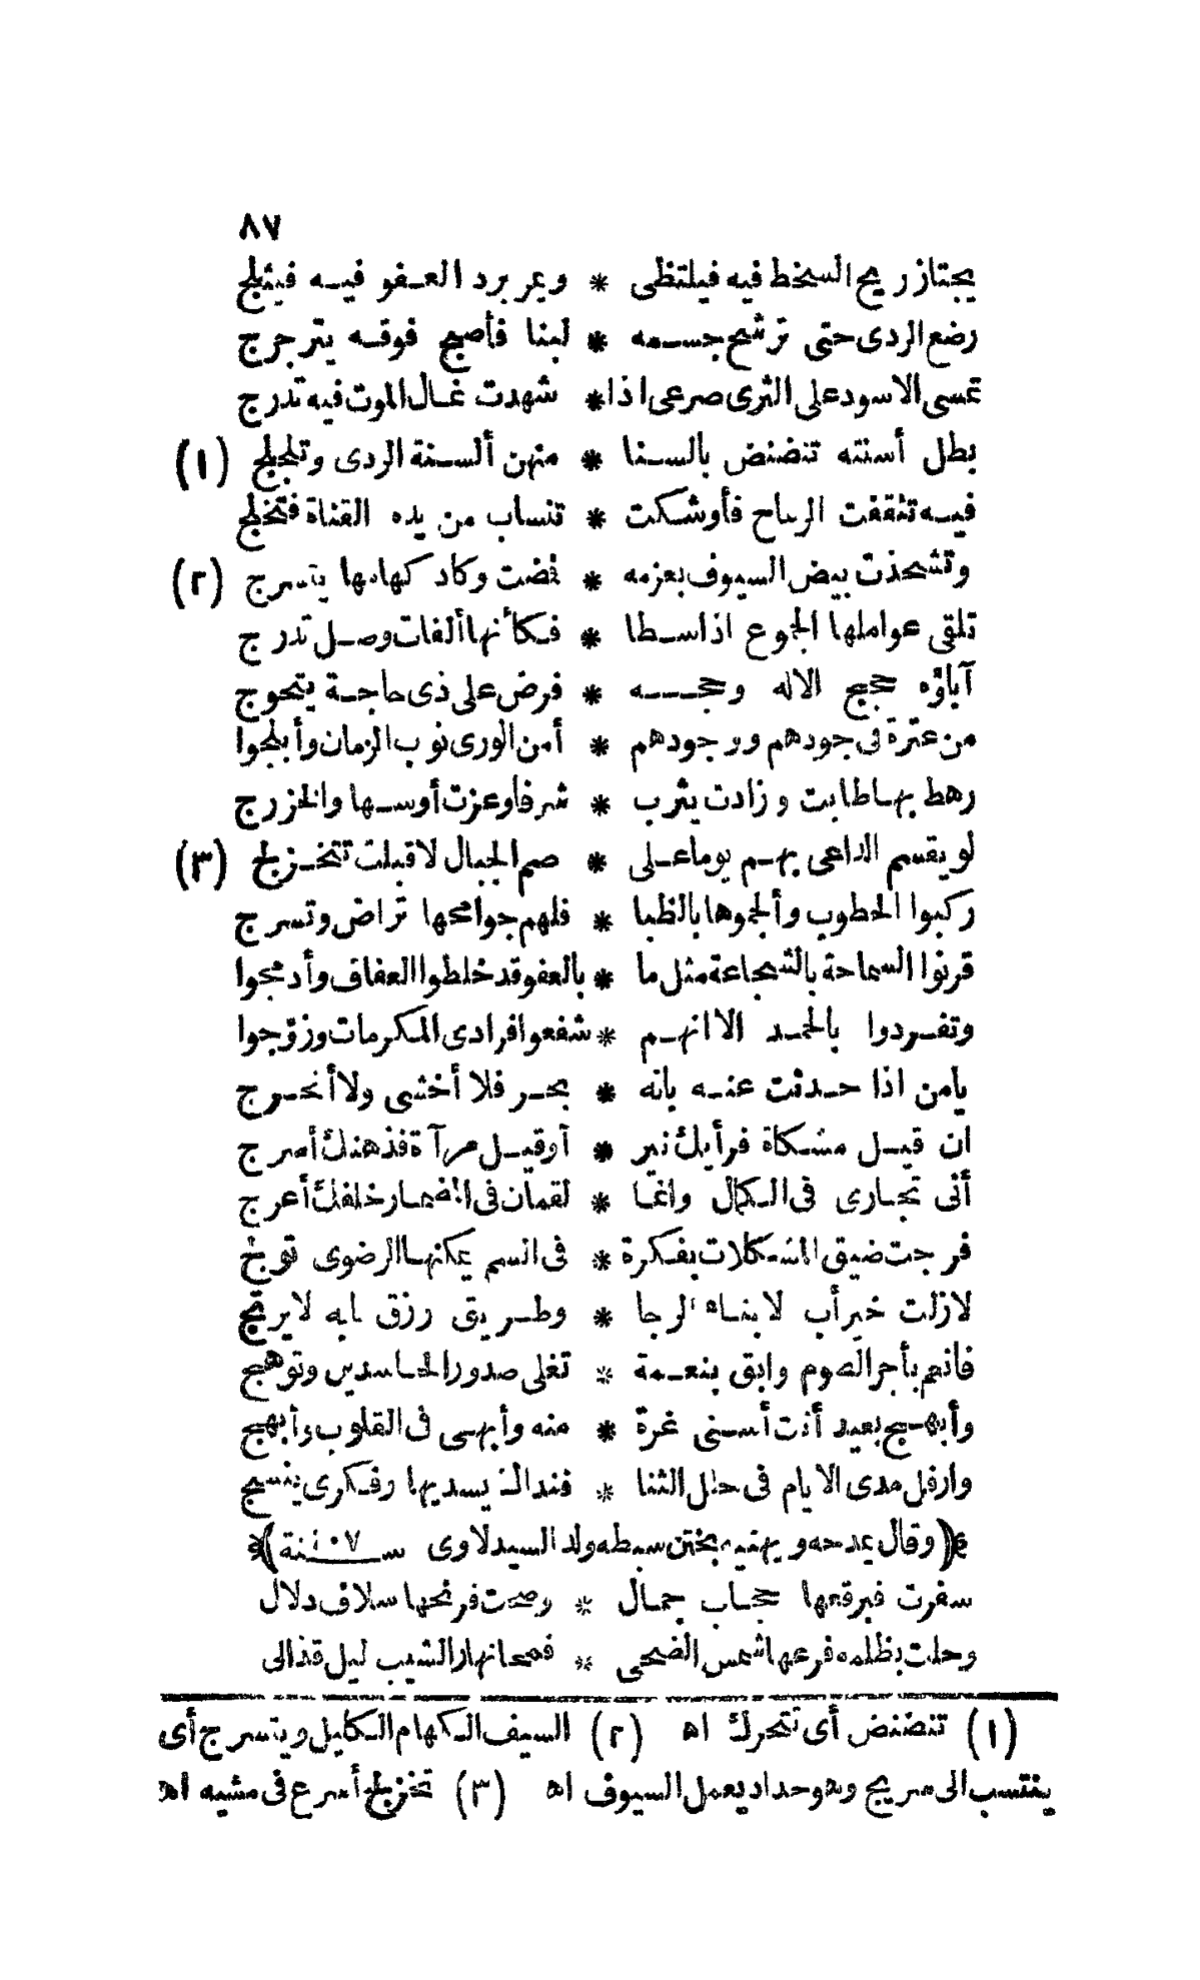 ٨٧
يجتاز ريح السخط فيه فيلتظى * ويمر برد العفو فيه فيثلج
رضع الردى حتى ترشح جسمه * لبنا فأصبح فوقه يترجرج
تمسى الاسود على الثرى صرعى اذا * شهدت غمال الموت فيه تدرج
بطل أسنته تنضنض بالسنا * منهن ألسنة الردى وتلجلج (١)
فيه تثقفت الرماح فأوشكت * تنساب من يده القناة فتخلج
وتشحذت بيض السيوف بعزمه * فضت وكاد كهامها يتسرج (٢)
تلقى عواملها الجموع اذا سطا * فكأنها ألفات وصل تدرج
آباؤه حجج الاله وحجه * فرض على ذى حاجة يتحوج
من عترة فى جودهم ووجودهم * أمن الورى نوب الزمان وأبلجوا
رهط بها طابت وزادت يثرب * شرفا وعزت أوسها والخزرج
لو يقسم الداعى بهم يوما على * صم الجبال لاقبلت تتخزلج (٣)
ركبوا الخطوب وألجموها بالظبا * فلهم جوامحها تراض وتسرج
قرنوا السماحة بالشجاعة مثل ما * بالعفو قد خلطوا العفاف وأدمجوا
وتفردوا بالحمد الا انهم * شفعوا فرادى المكرمات وزوّجوا
يامن اذا حدثت عنه بانه * بحر فلا أخشى ولا أتحرج
ان قيل مشكاة فرأيك نير * أوقيل مرآة فذهنك أسرج
أنى تجارى فى الكمال وانما * لقمان فى المضمار خلفك أعرج
فرجت ضيق المشكلات بفكرة * فى السم يمكنها الرضوى تولج
لازلت خير أب لابناء الرجا * وطريق رزق بابه لايرتج
فانعم بأجر الصوم وابق بنعمة * تغلى صدور الحاسدين وتوهج
وأبهج بعيد أنت أسنى غرة * منه وأبهى فى القلوب وأبهج
وارفل مدى الايام فى حلل الثنا * فنداك يسديها وفكرى ينسج
﴿وقال يمدحه ويهنيه بختن سبطه ولد السيد لاوى سنة ١٠٧﴾
سفرت فبرقعها حجاب جمال * وصحت فرنحها سلاف دلال
وحلت بظلمه فرعها شمس الضحى * فمحا نهار الشيب ليل قذالى
(١) تنضنض أى تتحرك اه (٢) السيف الكهام الكليل ويتسرج أى
ينتسب الى سريج وهو حداد يعمل السيوف اه (٣) تخزلج أسرع فى مشيه اه